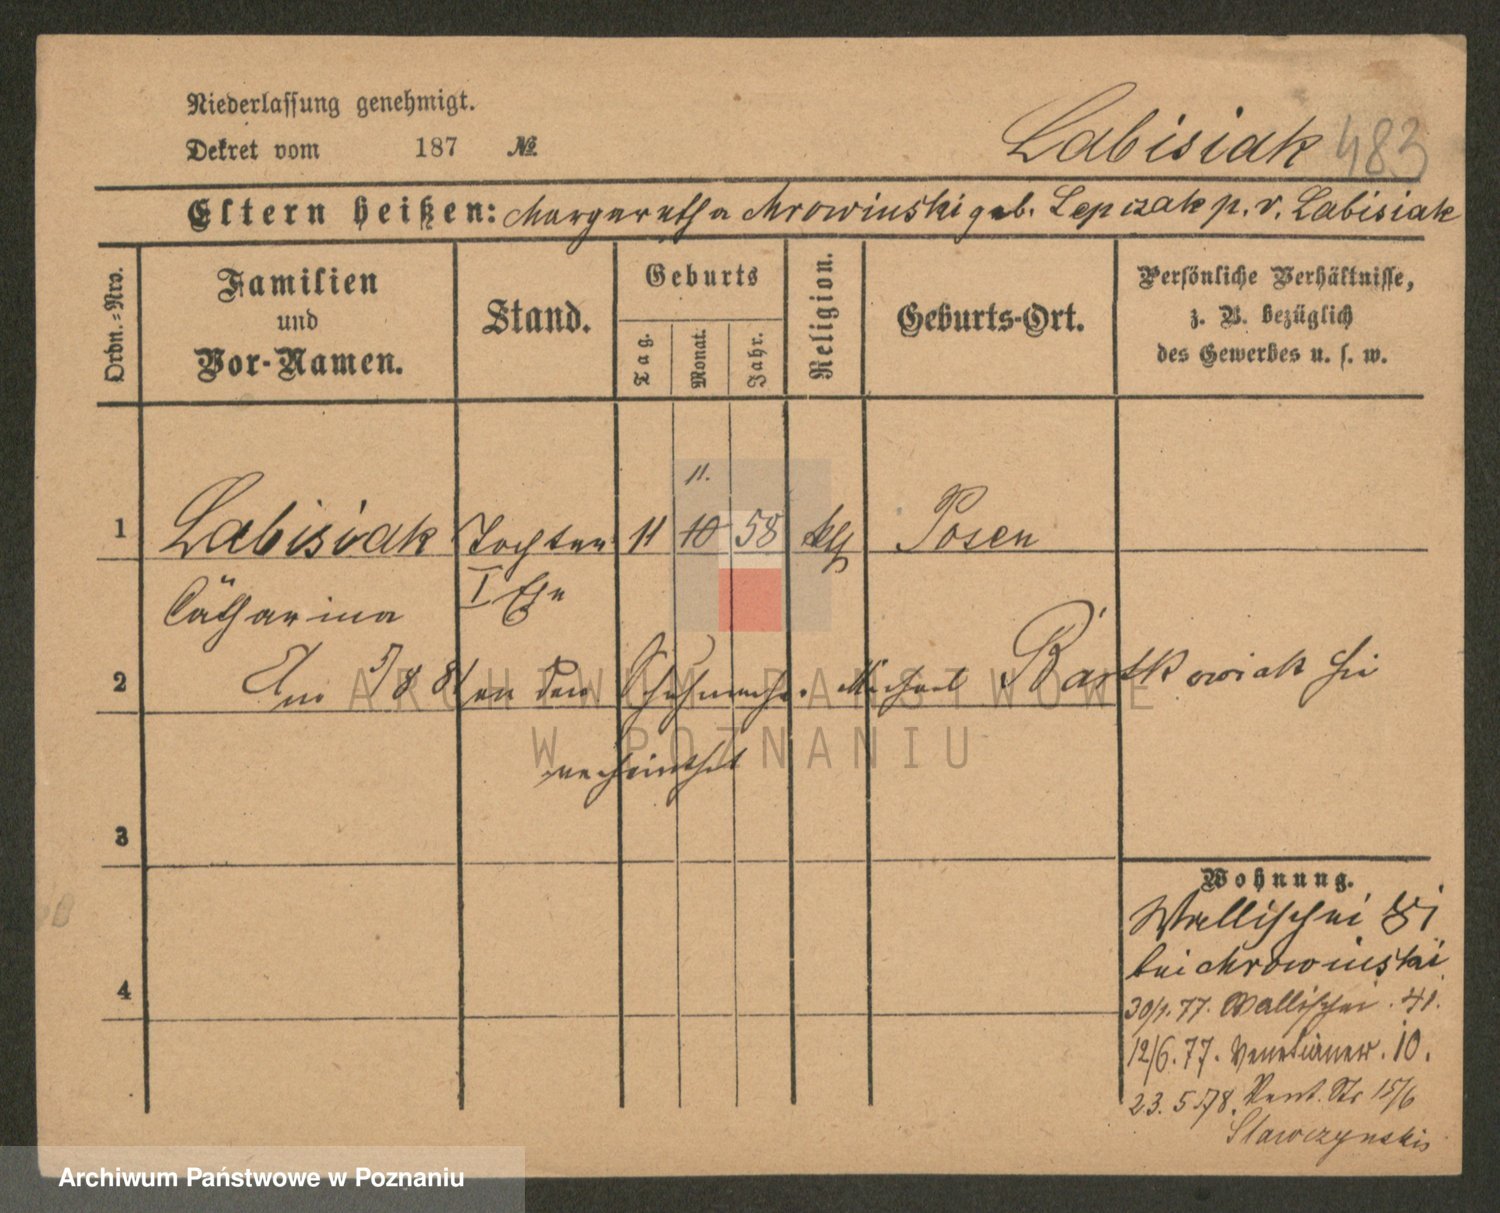 Niederlassung genehmigt.
Dekret vom 187 №
Labisiak 483
Eltern heißen: Margaretha Mrowinski geb. Lepczak p. v. Labisiak
Ordn.=Nro.
Familien
und
Vor-Namen.
Stand.
Geburts
Tag.
Monat.
Jahr.
Religion.
Geburts-Ort.
Persönliche Verhältnisse,
z. B. bezüglich
des Gewerbes u. s. w.
11.
1 Labisiak Tochter 11 10 58 kth Posen
Catharina I Ehe
2 Am 5/8 81 an den Schuhmacher Michael Bartkowiak hie
verheirathet
3
4
Wohnung.
Wallischei
bei Mrowinski
30/1. 77. Wallischei . 41.
12/6. 77. Venetianer. 10.
23. 5. 78. Vent. Str 15/6
Slawczynskis
ARCHIWUM PAŃSTWOWE
W POZNANIU
Archiwum Państwowe w Poznaniu